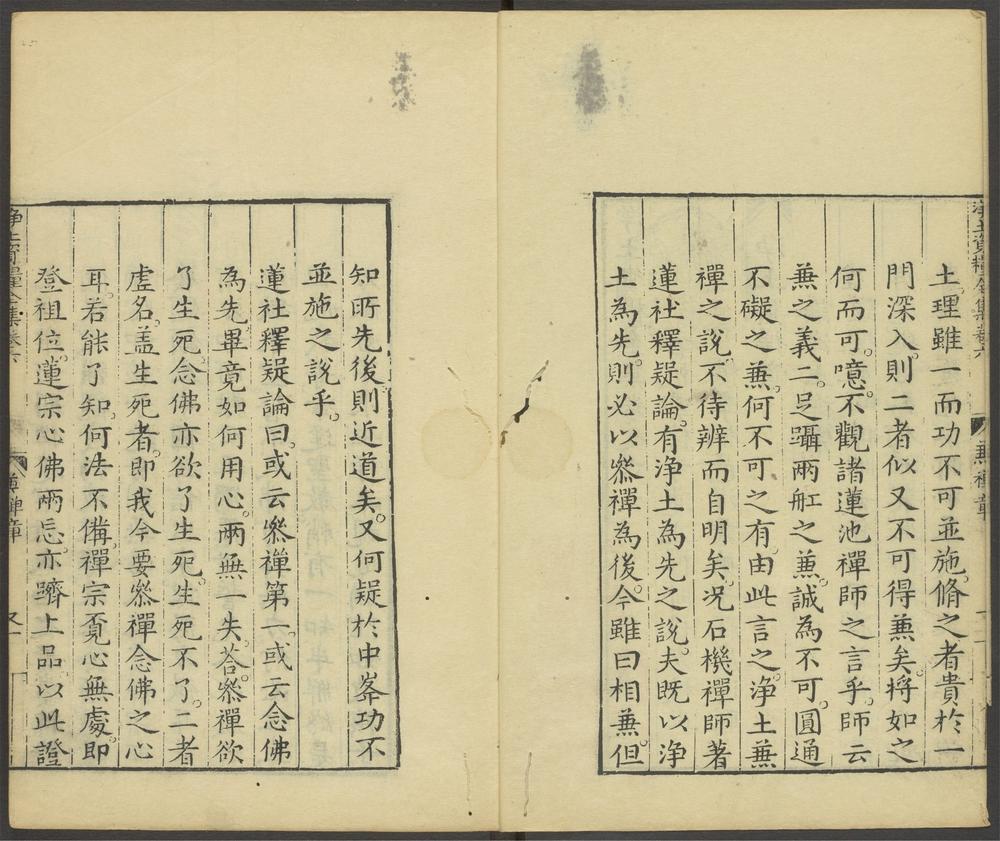 淨土資糧全集卷六
兼禪章
土。理雖一而功不可並施。脩之者貴於一
門深入。則二者似又不可得兼矣。將如之
何而可。噫。不觀諸蓮池禪師之言乎。師云
兼之義二。足躡兩舡之兼。誠為不可。圓通
不礙之兼。何不可之有。由此言之。淨土兼
禪之說。不待辨而自明矣。况石機禪師著
蓮社釋疑論。有淨土為先之說。夫既以淨
土為先。則必以叅禪為後。今雖曰相兼。但
知所先後。則近道矣。又何疑於中峯功不
並施之說乎。
蓮社釋疑論曰。或云叅禪第一。或云念佛
為先。畢竟如何用心。兩無一失。荅。叅禪欲
了生死。念佛亦欲了生死。生死不了。二者
虛名。盖生死者。即我今要叅禪念佛之心
耳。若能了知。何法不備。禪宗覔心無處。即
登祖位。蓮宗心佛兩忘。亦躋上品。以此證
淨土資糧全集卷六
兼禪章
又一